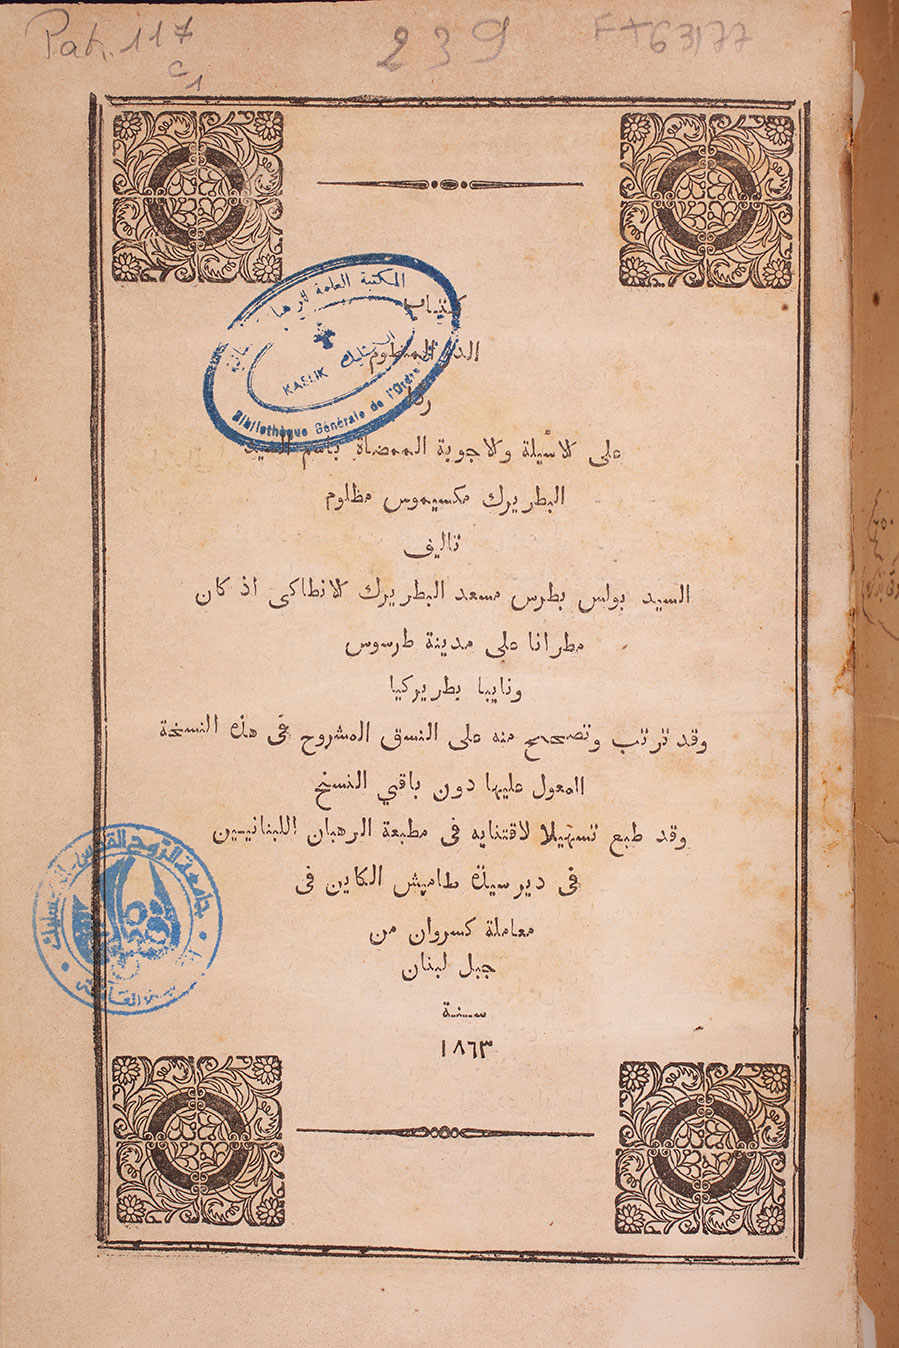 Pat. 117
c1
239
FT63177
المكتبة العامة
الكسليك
KASLIK
Bibliothèque Générale de l'Ordre
كتاب
الدر المنظوم
ردا
على الاسيلة والاجوبة الممضاة باسم السيد
البطريرك مكسيموس مظلوم
تاليف
السيد بولس بطرس مسعد البطريرك الانطاكى اذ كان
مطرانا على مدينة طرسوس
ونايبا بطريركيا
وقد ترتب وتصحح منه على النسق المشروح فى هذه النسخة
المعول عليها دون باقي النسخ
وقد طبع تسهيلا لاقتنايه فى مطبعة الرهبان اللبنانيين
فى دير سيدة طاميش الكاين فى
معاملة كسروان من
جبل لبنان
سنة
١٨٦٣
جامعة الروح القدس - الكسليك